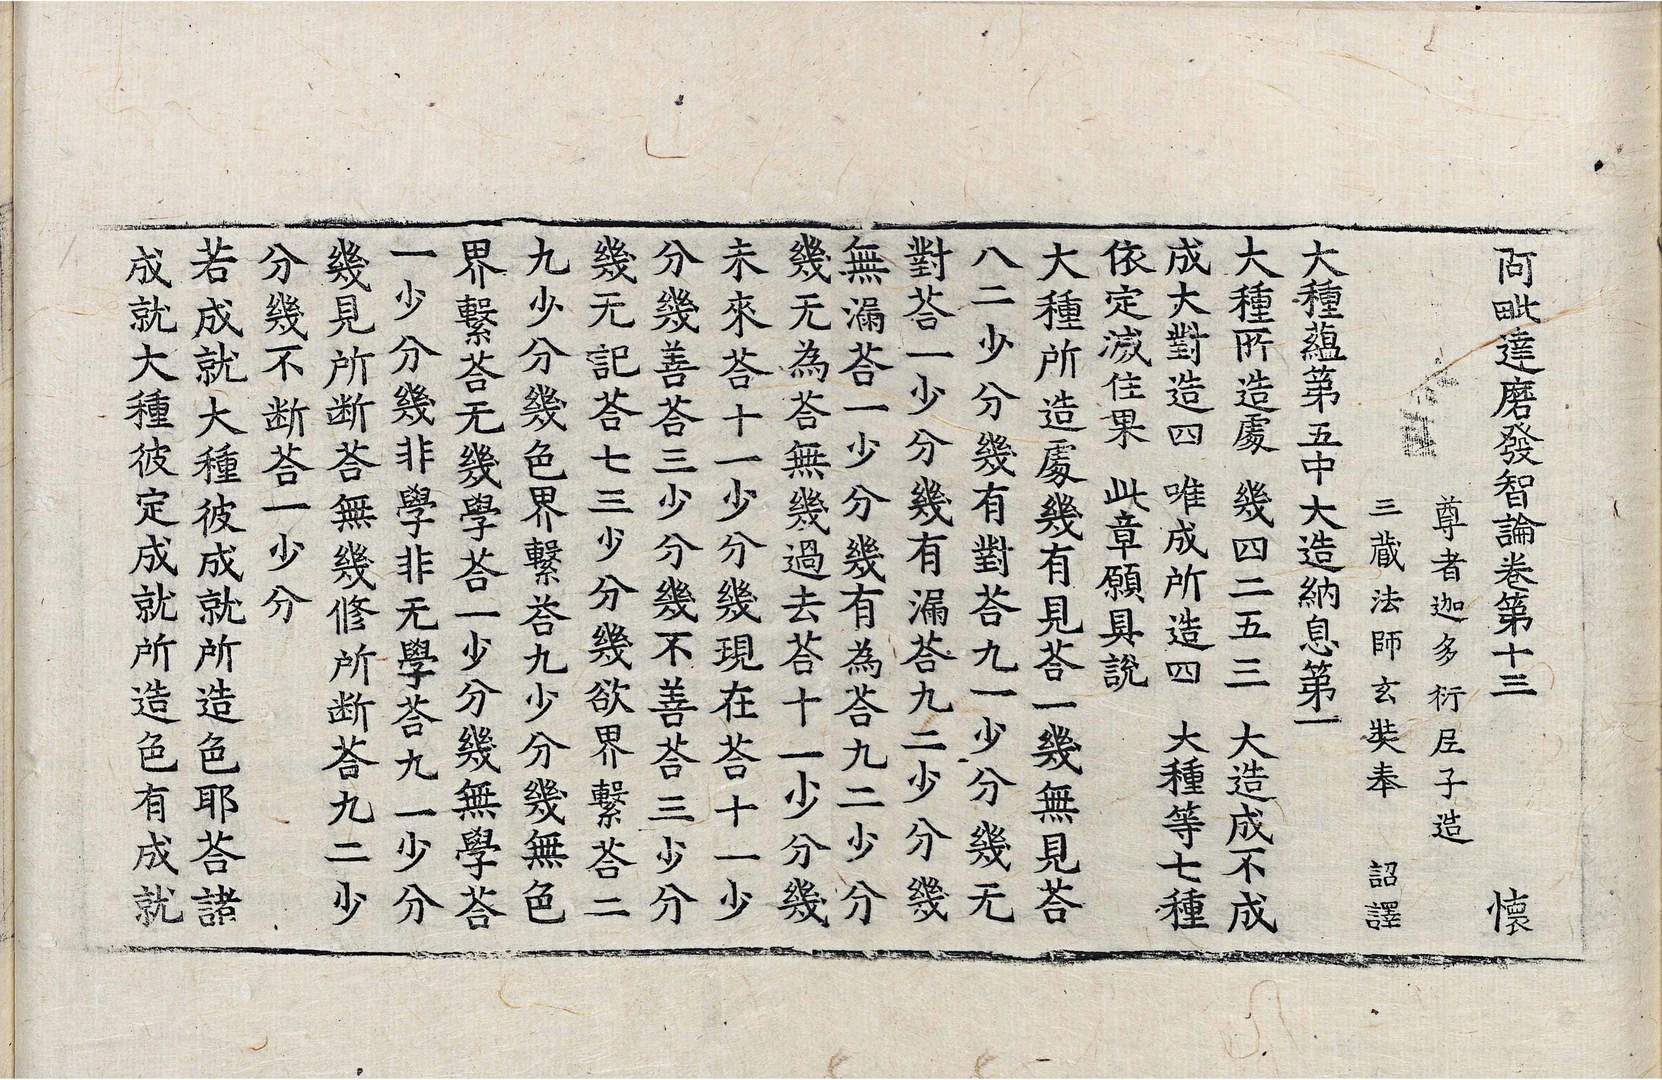 阿毗達磨發智論卷第十三　懷
尊者迦多衍尼子造
三藏法師玄奘奉　詔譯
大種蘊第五中大造納息第一
大種所造處　幾四二五三　大造成不成
成大對造四　唯成所造四　大種等七種
依定滅住果　此章願具說
大種所造處幾有見荅一幾無見荅
八二少分幾有對荅九一少分幾无
對荅一少分幾有漏荅九二少分幾
無漏荅一少分幾有為荅九二少分
幾无為荅無幾過去荅十一少分幾
未來荅十一少分幾現在荅十一少
分幾善荅三少分幾不善荅三少分
幾无記荅七三少分幾欲界繫荅二
九少分幾色界繫荅九少分幾無色
界繫荅无幾學荅一少分幾無學荅
一少分幾非學非无學荅九一少分
幾見所断荅無幾修所断荅九二少
分幾不断荅一少分
若成就大種彼成就所造色耶荅諸
成就大種彼定成就所造色有成就